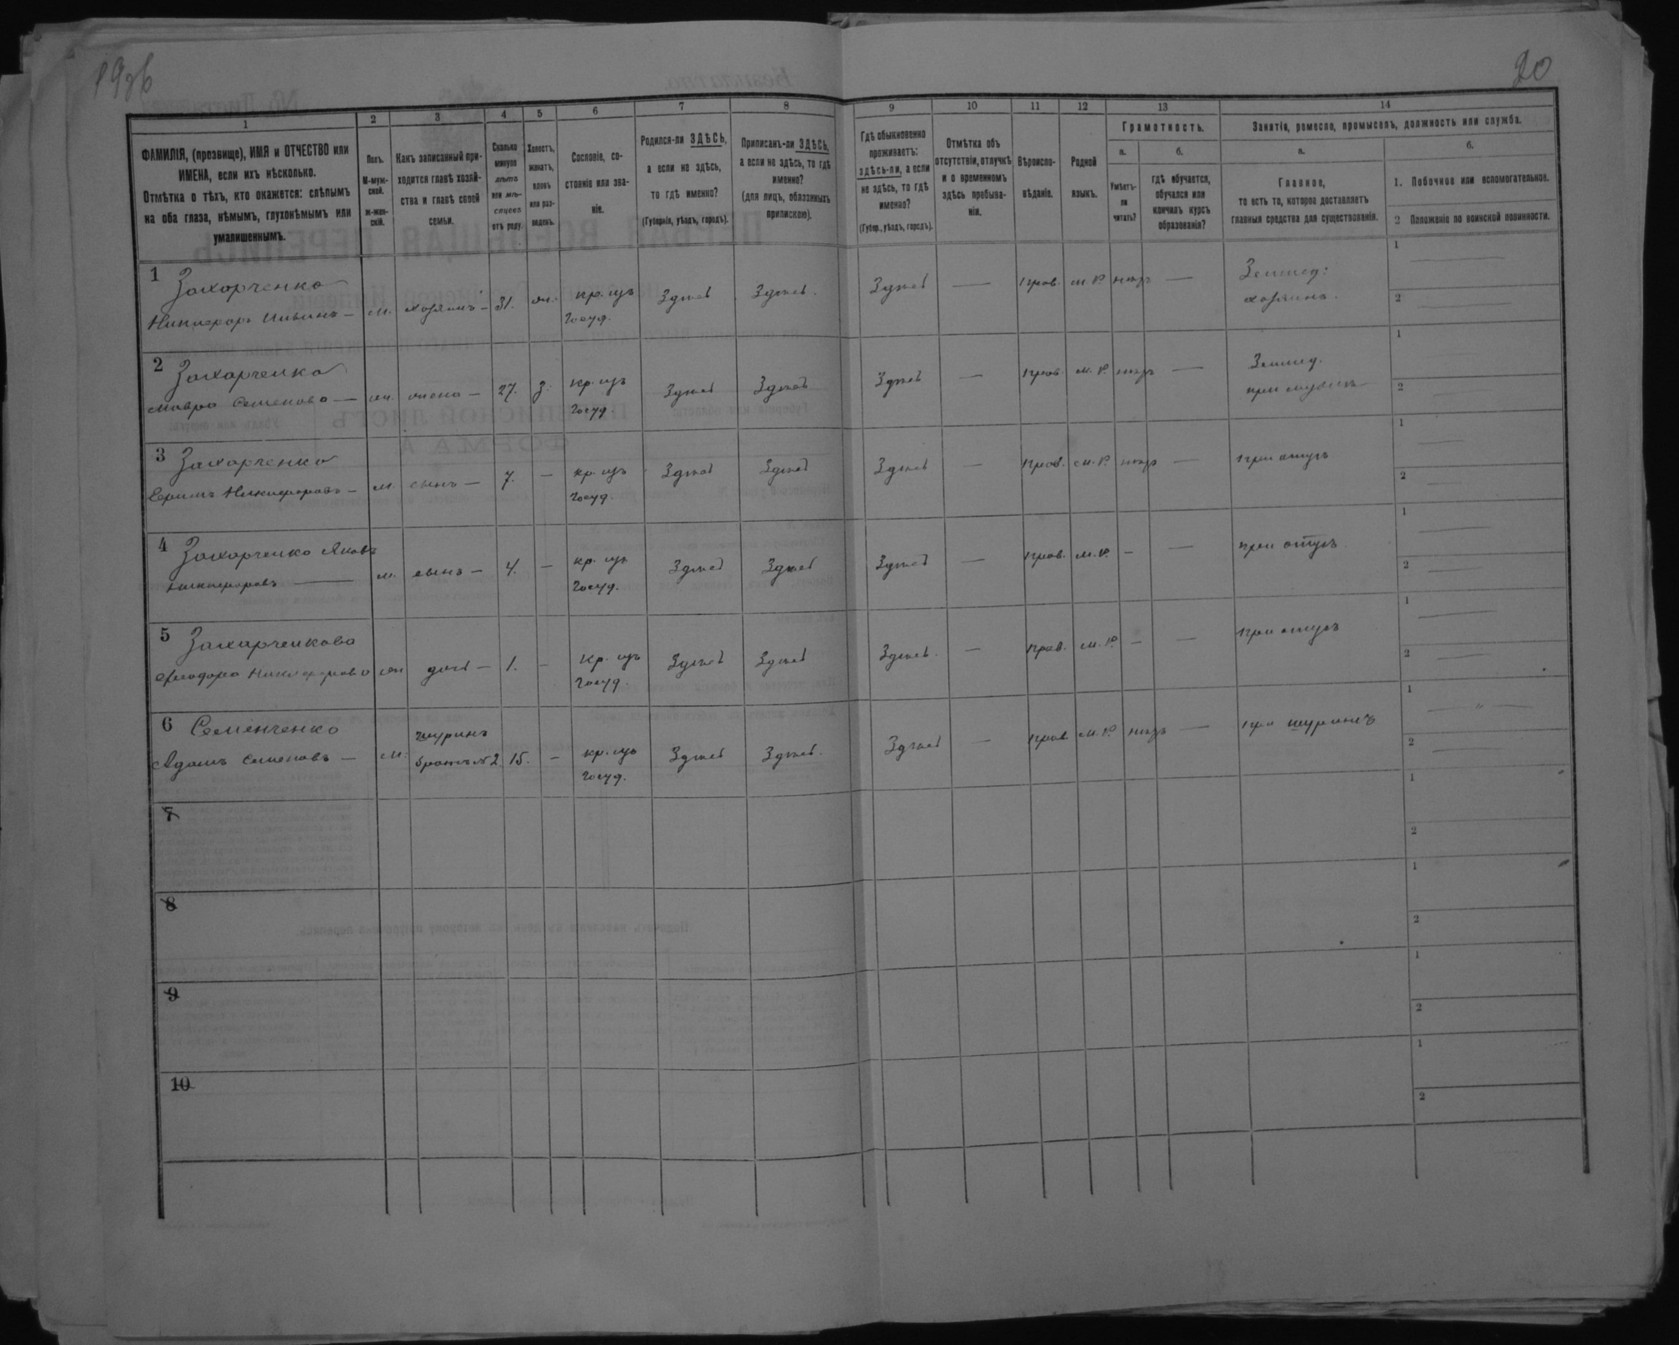 20
1
2
3
4
5
6
7
8
9
10
11
12
13
14
ФАМИЛІЯ, (прозвище), ИМЯ и ОТЧЕСТВО или
ИМЕНА, если ихъ нѣсколько.
Отмѣтка о тѣхъ, кто окажется: слѣпымъ
на оба глаза, нѣмымъ, глухонѣмымъ или
умалишеннымъ.
Полъ.
М-муж-
ской.
Ж-жен-
скій.
Какъ записанный при-
ходится главѣ хозяй-
ства и главѣ своей
семьи.
Сколько
минуло
лѣтъ
или мѣ-
сяцевъ
отъ роду.
Холостъ,
женатъ,
вдовъ
или раз-
веденъ.
Сословіе, со-
стояніе или зва-
ніе.
Родился-ли ЗДѢСЬ,
а если не здѣсь,
то гдѣ именно?
(Губернія, уѣздъ, городъ).
Приписанъ-ли ЗДѢСЬ,
а если не здѣсь, то гдѣ
именно?
(для лицъ, обязанныхъ
припискою).
Гдѣ обыкновенно
проживаетъ:
здѣсь-ли, а если
не здѣсь, то гдѣ
именно?
(Губер., уѣздъ, городъ).
Отмѣтка объ
отсутствіи, отлучкѣ
и о временномъ
здѣсь пребыва-
ніи.
Вѣроиспо-
вѣданіе.
Родной
языкъ.
Грамотность.
а.
Умѣетъ-
ли
читать?
б.
гдѣ обучается,
обучался или
кончилъ курсъ
образованія?
Занятіе, ремесло, промыселъ, должность или служба.
а.
Главное,
то есть то, которое доставляетъ
главныя средства для существованія.
б.
1. Побочное или вспомогательное.
2 Положеніе по воинской повинности.
1
Захарченко
Никифоръ Ильинъ —
м. хозяинъ — 31. ж. кр. изъ
госуд. Здѣсь Здѣсь. Здѣсь — прав. м. р. нѣтъ —
Землед:
хозяинъ.
1
2
2
Захарченко
Мавра Семенова —
ж. жена — 27. з. кр. изъ
госуд Здѣсь Здѣсь Здѣсь — прав м. р. нѣтъ —
Землед.
при мужѣ
1
2
3
Захарченко
Ефимъ Никифоровъ —
м. сынъ — 7. — кр. изъ
госуд. Здѣсь Здѣсь Здѣсь — прав. м. р. нѣтъ — при отцѣ
1
2
4
Захарченко Яковъ
Никифоровъ —
м. сынъ — 4. — кр. изъ
госуд. Здѣсь Здѣсь Здѣсь — прав. м. р. — — при отцѣ
1
2
5
Захарченкова
Ѳеодора Никифорова
ж дочь — 1. — кр. изъ
госуд. Здѣсь Здѣсь Здѣсь. — прав. м. р. — — при отцѣ
1
2
6
Семенченко
Адамъ Семеновъ —
м. шуринъ
братъ №2 15. — кр. изъ
госуд. Здѣсь Здѣсь. Здѣсь — прав м. р. нѣтъ — при шуринѣ
1
2
7
1
2
8
1
2
9
1
2
10
1
2